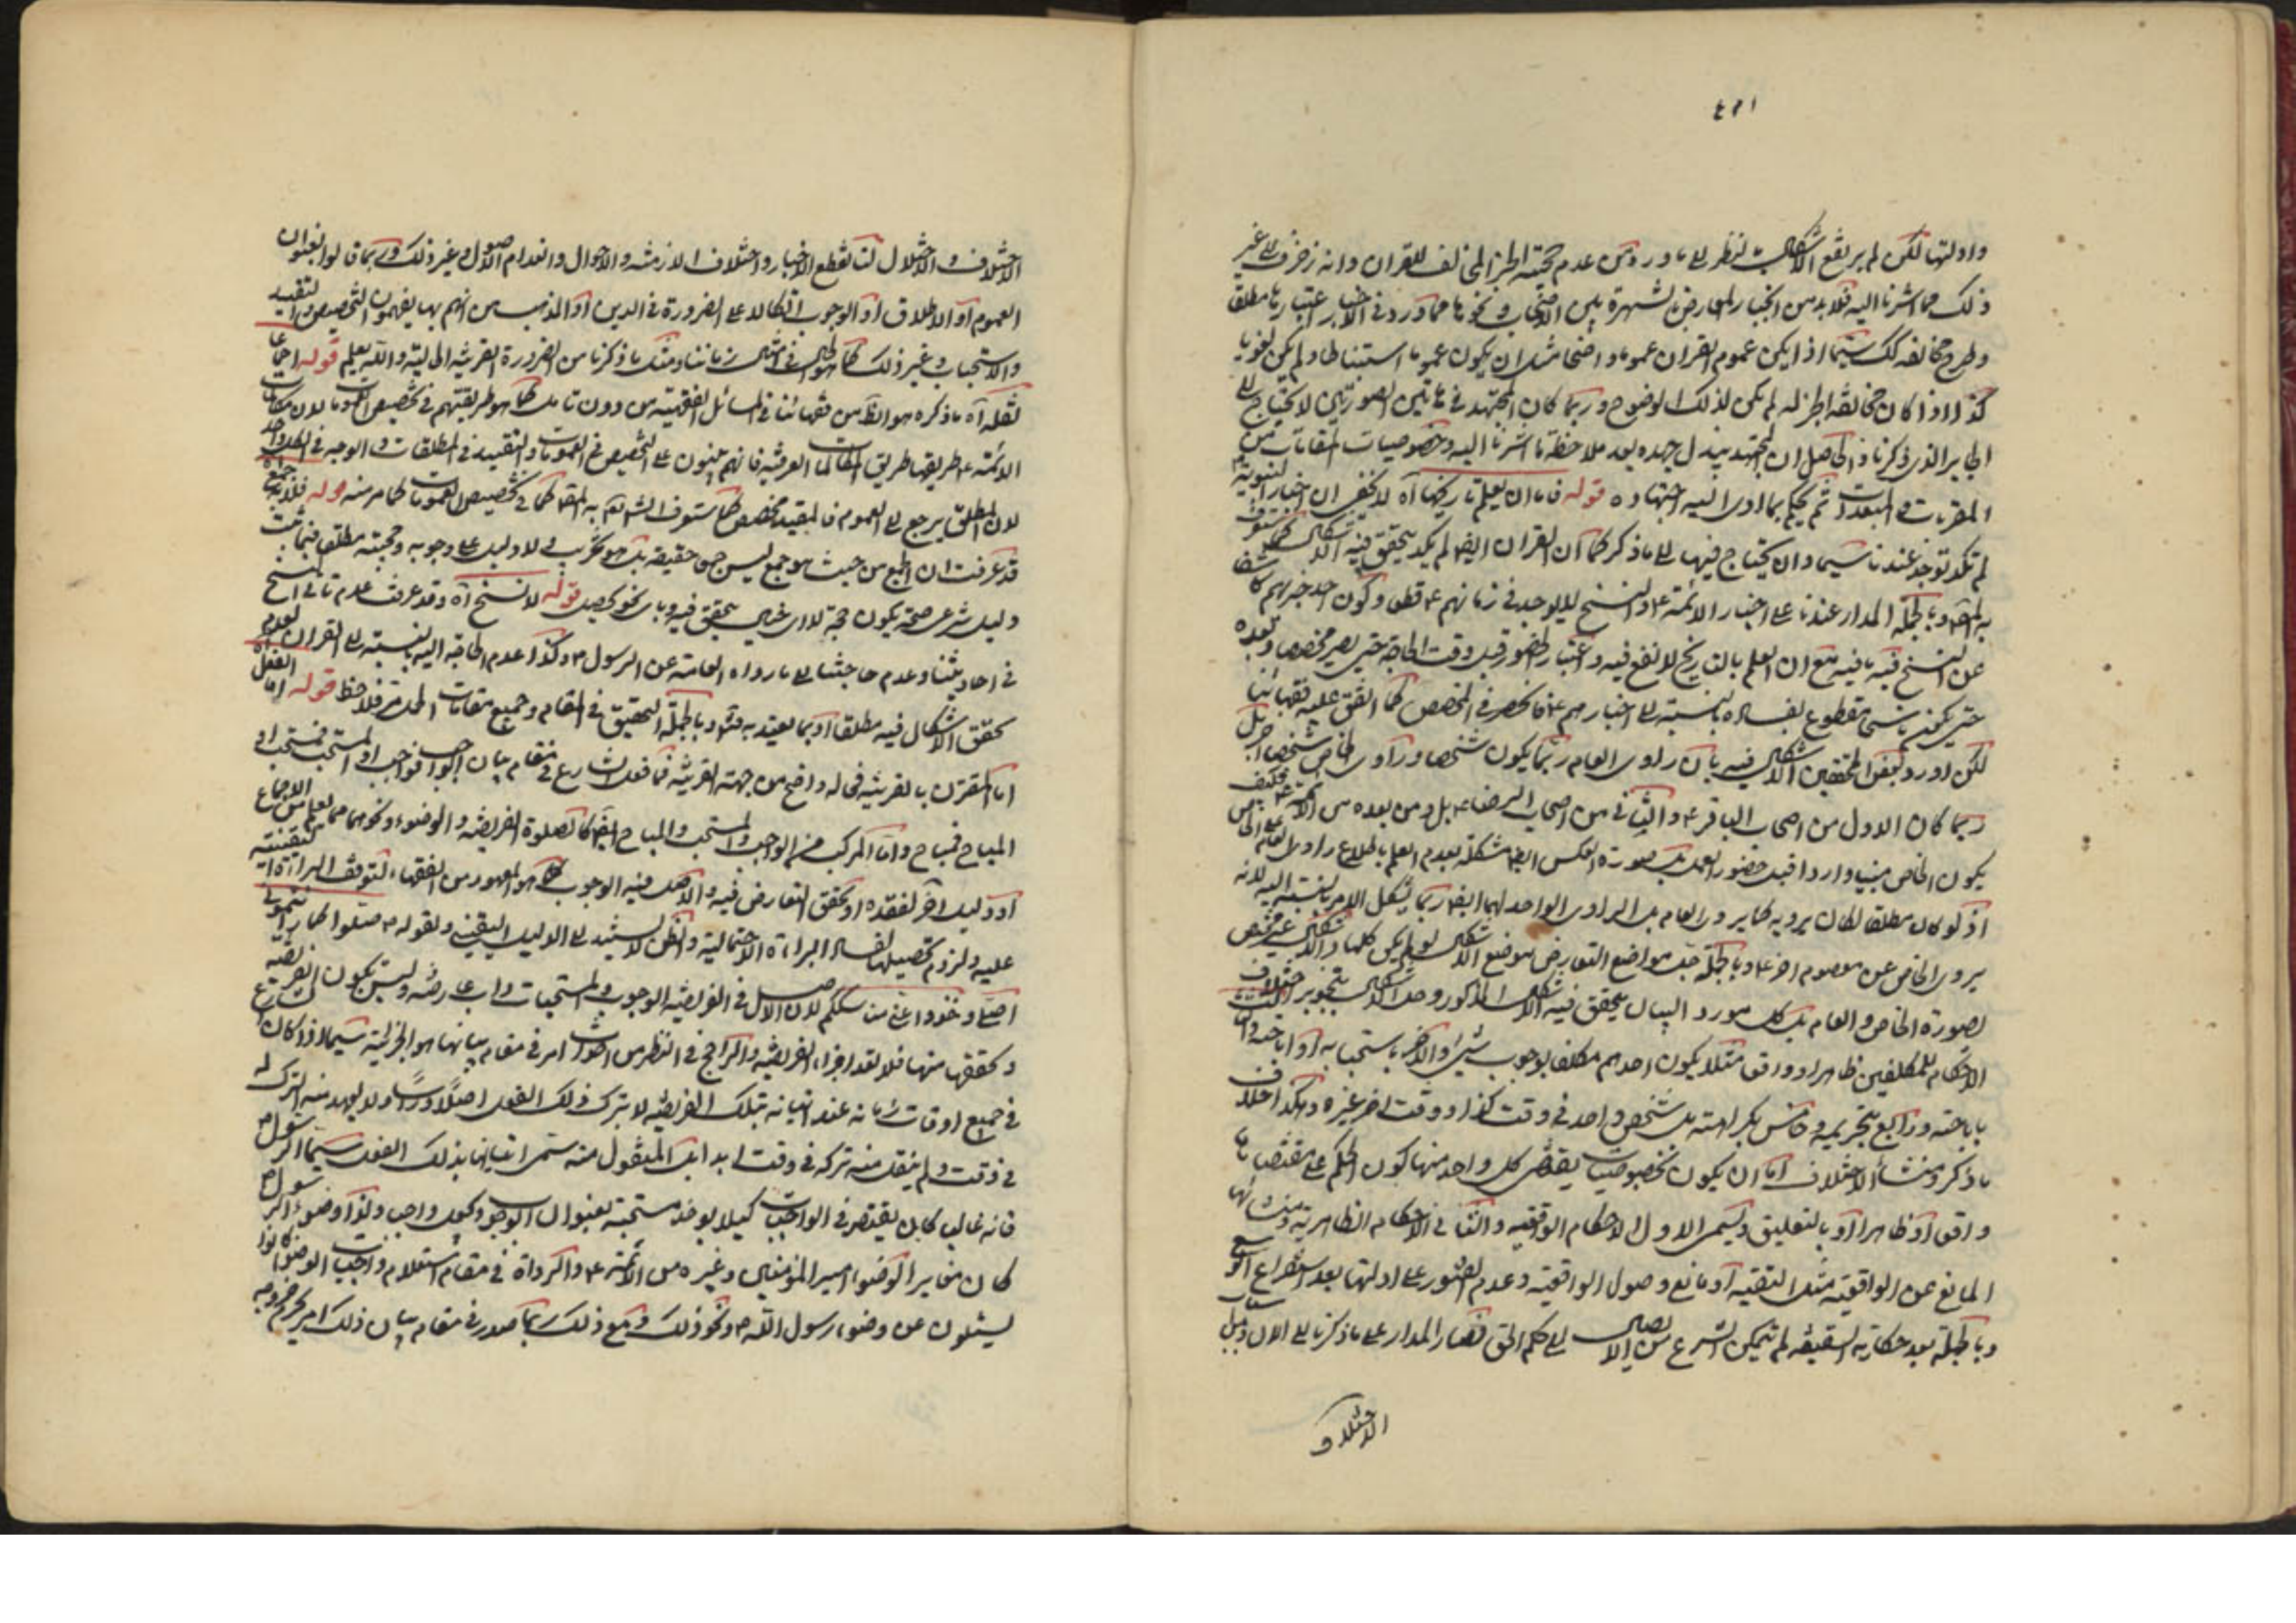 وادلتها لكن لم يرتفع الاشكال بالنظر الى ما ورد من عدم حجية الخبر المخالف للقران وانه زخرف الى غير
ذلك مما اشرنا اليه فلا بد من انجبار المعارض بالشهرة بين الاصحاب ونحوها مما ورد في الاخبار اعتبارها مطلقا
وطرح مخالفه سيما اذا لم يكن عموم القران عموما واضحا مثل ان يكون عموما استنباطيا ولم يكن لغويا
كذا اذا كان مخالفة الخبر له لم يكن لذلك الوضوح وربما كان المجتهد في هاتين الصورتين لا يحتاج الى
الجابر الذي ذكرنا والحاصل ان المجتهد يبذل جهده بعد ملاحظة ما اشرنا اليه وخصوصيات المقامات من
المقربات والمبعدات ثم يحكم بما ادى اليه اجتهاده قوله فاما ان يعلم تاريخهما آه لا يخفى ان اخبار النبوية
لم تكد توجد عندنا سيما وان يحتاج فيها الى ما ذكر كما ان القران ايضا لم يكد يتحقق فيه الاشكال كما ستعرف
وبالجملة المدار عندنا على اخبار الائمة ع والنسخ لا يوجد في زمانهم ع قطعا وكون احد خبريهم كاشفا
عن النسخ فيه ما فيه مع ان العلم بالتاريخ لا نفع فيه واعتبار الحضور قبل وقت الحاجة حتى يصير مخصصا وبعده
حتى يكون نسخا مقطوع بفساده بالنسبة الى اخبارهم ع فانحصر في المخصص كما اتفق عليه فقهائنا
لكن اورد بعض المحققين الاشكال فيه بان راوي العام ربما يكون شخصا وراوي الخاص شخصا اخر بل
ربما كان الاول من اصحاب الباقر ع والثاني من اصحاب الرضا ع بل ومن بعده من الائمة ع فكيف
يكون الخاص مبينا واردا قبل حضور العمل بل صورة العكس ايضا مشكلة بعدم العلم باطلاع راوي العام على الخاص
اذ لو كان مطلقا لكان يرويه كما يروي العام بل الراوي الواحد لهما ايضا ربما يشكل الامر بالنسبة اليه لانه
يروي الخاص عن معصوم اخر ع وبالجملة جل مواضع التعارض موضع الاشكال لو لم يكن كلها والاشكال غير مختص
بصورة الخاص والعام بل كل مورد البيان يتحقق فيه الاشكال المذكور وحل الاشكال بتجويز اختلاف
الاحكام للمكلفين ظاهرا وواقعا مثلا يكون احدهم مكلفا بوجوب شيء والاخر باستحبابه او اباحته وثالث
باباحته ورابع بتحريمه وخامس بكراهته بل شخص واحد في وقت كذا ووقت اخر غيره وهكذا اختلاف
ما ذكر ومنشأ الاختلاف اما ان يكون بخصوصيات يقتضي كل واحد منها كون الحكم على مقتضاها
واقعا او ظاهرا او بالتعليق ويسمى الاول الاحكام الواقعية والثاني الاحكام الظاهرية ومنشائها
المانع عن الواقعية مثل التقية او مانع وصول الواقعية وعدم العثور على ادلتها بعد استفراغ الوسع
وبالجملة بعد حكاية السقيفة لم يتمكن الشرع من الايصال الى حكم الحق فصار المدار على ما ذكرنا الى الان
الاختلاف
الاختلاف والاختلال لتا لتقطع الاخبار واختلاف الازمنة والاحوال وانعدام الاصول وغير ذلك وربما قالوا بعنوان
العموم او الاطلاق او الوجوب اتكالا على الضرورة في الدين او المذهب من انهم بها يفهمون التخصيص والتقييد
والاستحباب وغير ذلك كما هو الحال في امثال زماننا ومثل ما ذكرنا من الضرورة القرينة الحالية والله يعلم قوله اجماعا
نقله آه ما ذكره هو الظاهر من فقهائنا في المسائل الفقهية من دون تامل كما هو طريقتهم في تخصيص العمومات لان مكالمات
الائمة ع طريقها طريق المكالمات العرفية فانهم يبنون على التخصيص في العمومات والتقييد في المطلقات والوجه في الكل واحد
لان المطلق يرجع الى العموم فالمقيد مخصص كما ستعرف كما في تخصيص العمومات كما مر منه قوله فلا بد
قد عرفت ان الجمع من حيث هو جمع ليس جمعا حقيقة بل هو تخريب لا دليل على وجوبه وحجيته مطلقا فيما ثبت
دليل شرعي صحته يكون حجة لا اي نحو يتحقق فيه وباي نحو يحصل قوله لا نسخ آه وقد عرفت عدم تاتي النسخ
في احاديثنا وعدم حاجتنا الى ما رواه العامة عن الرسول ص وكذا عدم الحاجة اليه بالنسبة الى القران لعدم
تحقق الاشكال فيه مطلقا او بما يعتد به فتأمل وبالجملة التحقيق في المقام وجميع مقامات فلاحظ قوله اما الفعل
اما المقترن بالقرينة فحاله واضح من جهة القرينة فما فعل الشارع في مقام بيان الواجب فواجب او المستحب فمستحب او
المباح فمباح واما المركب من الواجب والمستحب والمباح ايضا كالصلوة الفريضة والوضوء ونحوهما مما يعلم من الاجماع
او دليل اخر لفقده او تحقق التعارض فيه والاصل فيه الوجوب كما هو المعهود من الفقهاء لتوقف البراءة اليقينية
عليه ولزوم تحصيلها لفساد البراءة الاحتمالية والظن لا يستند الى الدليل اليقيني ولقوله ص صلوا كما رايتموني
اصلي وخذوا عني مناسككم لان الاصل في الفريضة الوجوب والمستحبات واجب عارضة وليس يكون الفريضة
وتحققها منها فلا تعد اجزاء الفريضة والراجح في النظر من امر في مقام بيانها هو الجزئية سيما اذا كان الشارع
في جميع اوقات زمانه عند اتيانه بتلك الفريضة لا يترك ذلك الفعل اصلا وراسا ولا يعهد منه الترك له
في وقت ولم ينقل منه تركه في وقت ابدا بل المنقول منه استمرار اتيانها بذلك الفعل سيما الرسول ص
فانه غالبا كان يقتصر في الواجبات كيلا يوخذ مستحبة بعنوان الوجوب وكيف واجب ولذا وضوء الرسول ص
كان مغايرا لوضوء امير المؤمنين وغيره من الائمة ع والرواة في مقام استعلام واجب الوضوء كانوا
يسئلون عن وضوء رسول الله ص ونحو ذلك ومع ذلك ربما صدر في مقام بيان ذلك امر